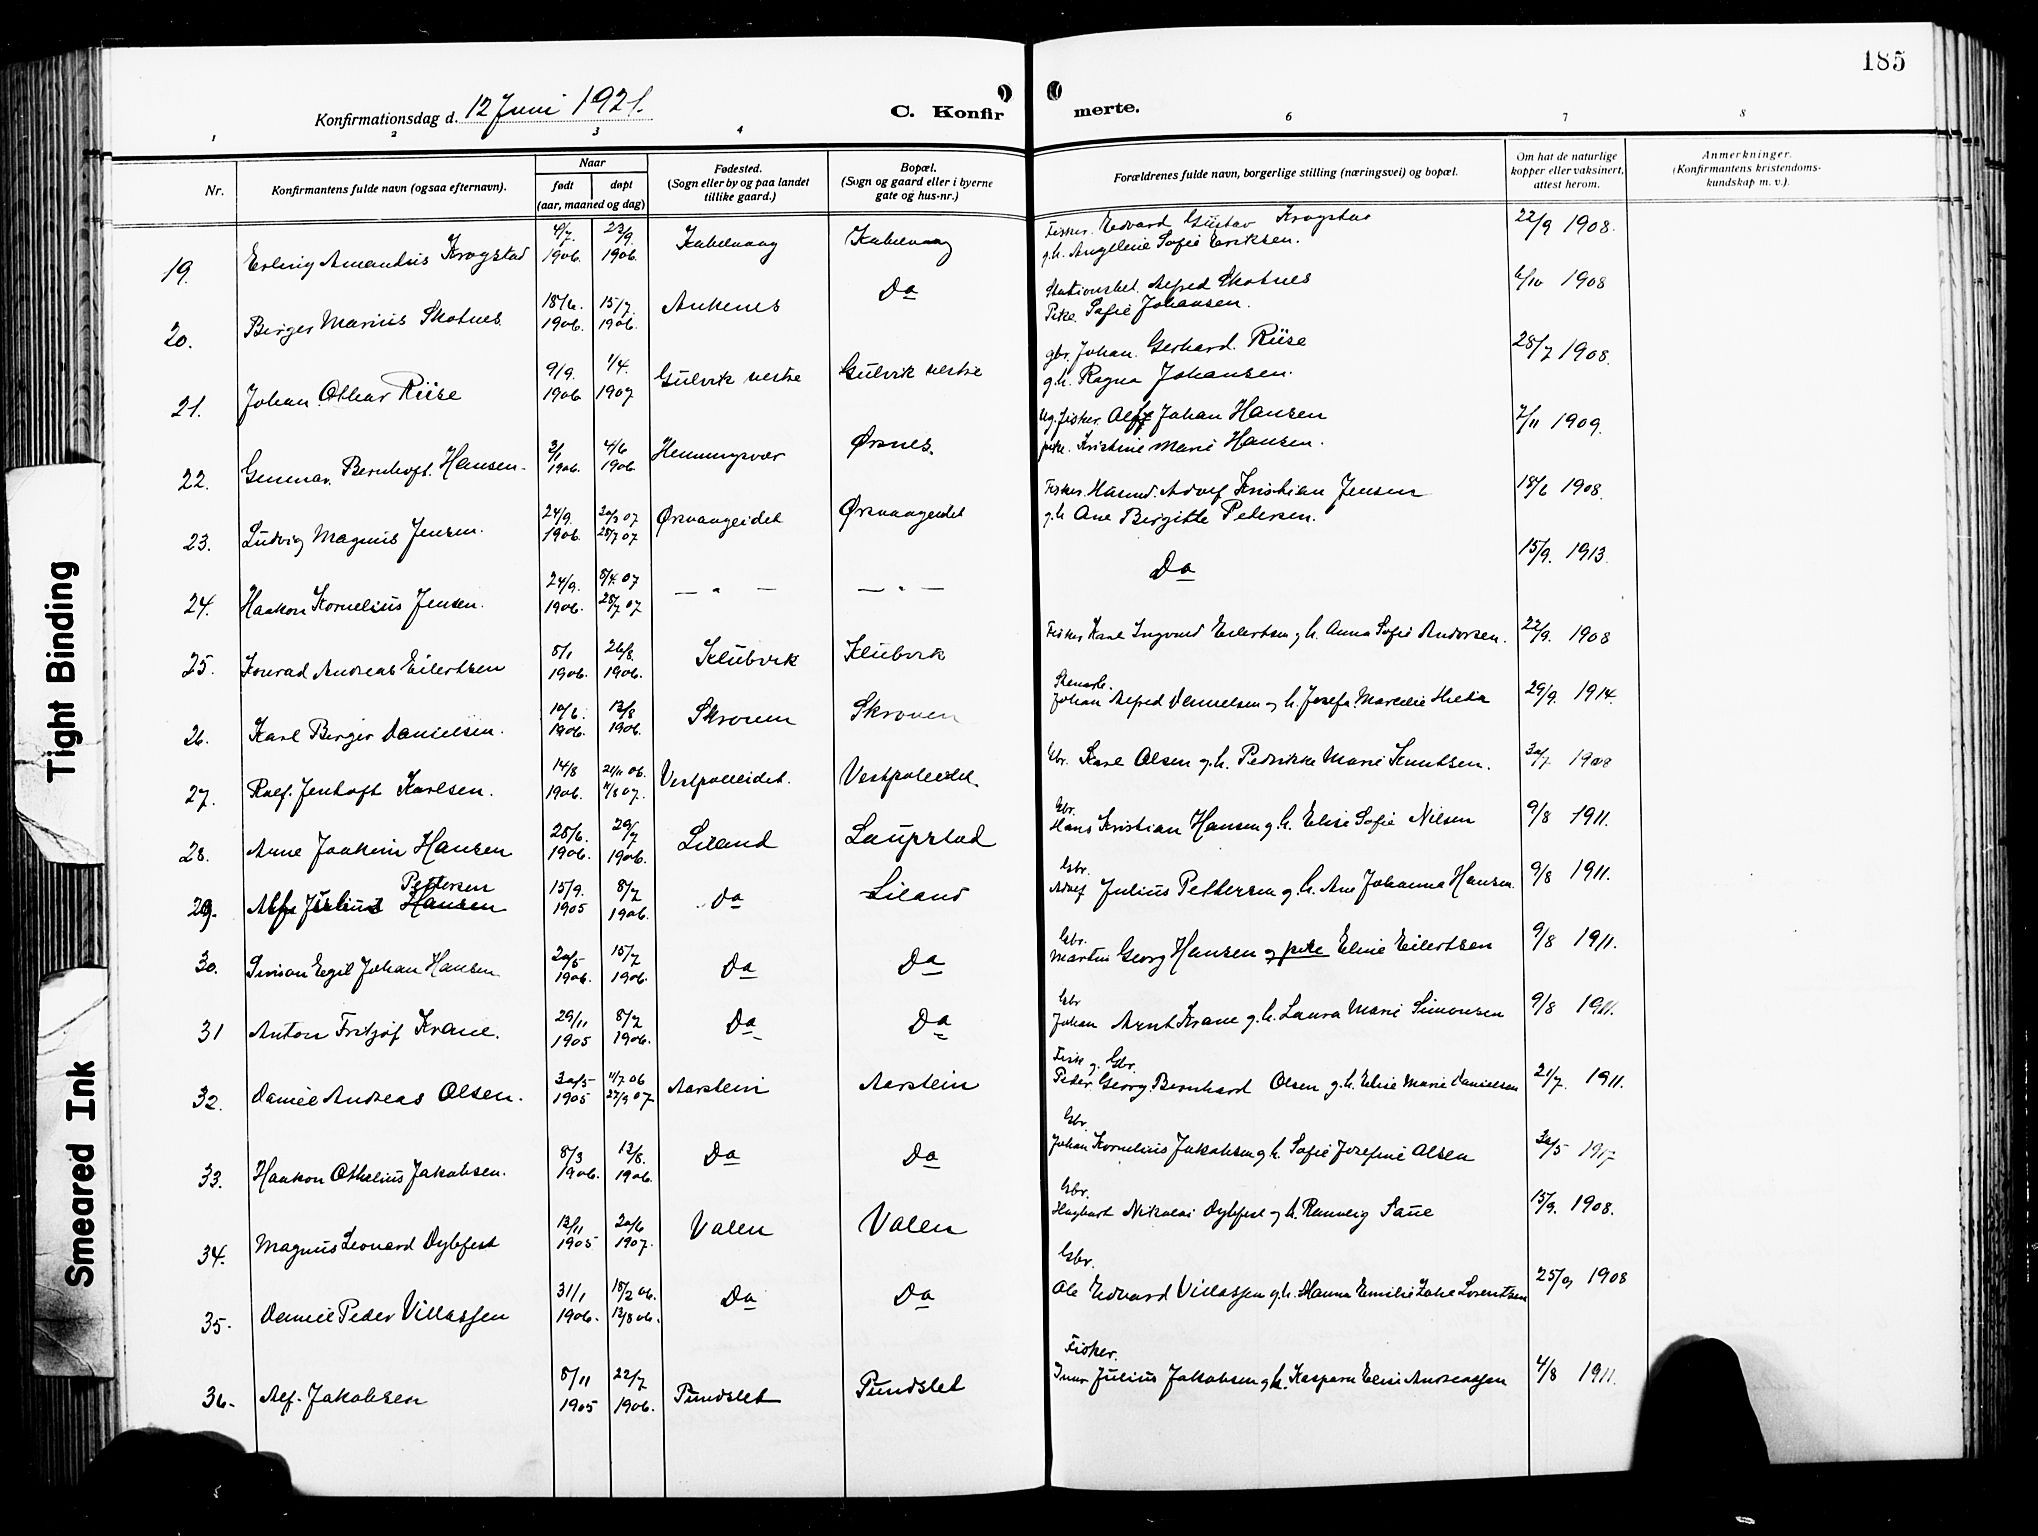 185
Konfirmationsdag d. 12 Juni 1921.
C. Konfirmerte.
1 2 3 4 6 7 8
Nr.
Konfirmantens fulde navn (ogsaa efternavn).
Naar
født
døpt
(aar, maaned og dag)
Fødested.
(Sogn eller by og paa landet
tillike gaard.)
Bopæl.
(Sogn og gaard eller i byerne
gate og hus-nr.)
Forældrenes fulde navn, borgerlige stilling (næringsvei) og bopæl.
Om hat de naturlige
kopper eller vaksinert,
attest herom.
Anmerkninger.
(Konfirmantens kristendoms-
kundskap m. v.).
19. Erling Amandus Krogstad 4/7 1906. 23/9. 1906. Kabelvaag Kabelvaag
Fisker. Edvard Gustav Krogstad
g.h. Angelline Sofie Eriksen. 22/9 1908.
20. Birger Marius Skotnes 18/6. 1906. 15/7. 1906. Ankenes Do
Stationsbet. Alfred Skotnes
Pike. Sofie Johansen. 6/10 1908
21. Johan Othar Riise 9/9. 1906 1/4. 1907 Gulvik vestre Gulvik vestre
gbr. Johan Gerhard Riise
g.h. Ragna Johansen. 28/7 1908.
22. Gunnar Bernhoft Hansen. 3/1 1906. 4/6 1906 Henningsvær Ørsnes.
Ug. fisker. Alf Johan Hansen
pike. Kristine Marie Hansen. 7/11 1909.
23. Ludvig Magnus Jensen. 24/9. 1906. 30/3 07 28/7 07 Ørsvaageidet Ørsvaageidet
Fisker. Husmd. Adolf Kristian Jensen
g.h Ane Birgitte Petersen. 18/6 1908.
24. Haakon Kornelius Jensen. 24/9. 1906. 5/4. 07 28/7 07 — " — — " —
Do 15/9. 1913.
25. Konrad Andreas Eilertsen 5/1 1906. 26/8. 1906. Klubvik Klubvik
Fisker Karl Ingvald Eilertsen g h. Anna Sofie Andersen. 22/9. 1908
26. Karl Birger Danielsen. 10/6. 1906. 12/8 1906. Skroven Skroven
Johan Alfred Danielsen og h. Josefa Marselie 29/9. 1914.
27. Ralf. Jenhoft Karlsen. 14/8 1906. 21/11 06. 11/8 07. Vestpolleidet. Vestpolleidet.
Gbr. Karl Olsen g.h. Pedrikke Marie Knutsen. 30/7 1908
28. Arne Joakim Hansen 28/6. 1906. 29/7 1906. Liland Laupstad
Gbr.
Hans Kristian Hansen g.h. Elise Sofie Nilsen 9/8 1911.
Pettersen
29. Alf Julius Hansen 15/9. 1905 8/7 1906. Do Liland
Gbr.
Adolf Julius Pettersen g.h. Ane Johanna Hansen. 9/8 1911.
30. Sivison Egil Johan Hansen 20/5 1906. 15/7 1906. Do Do
Gbr.
Martin Georg Hansen og pike Eline Eilertsen 9/8 1911.
31 Anton Fritjof Krane. 29/11 1905 8/7 1906. Do Do
Gbr
Johan Arnt Krane g.h. Laura Marie Simonsen 9/8 1911.
32. Daniel Andreas Olsen. 30/5 1905 11/7 06 27/9 07. Aarstein Aarstein
Fisk. g. Gbr.
Peder Georg Bernhard Olsen g.h. Elise Marie Danielsen 21/7. 1911.
33. Haakon Othelius Jakobsen. 8/3 1906. 12/8. 1906. Do Do
Gbr.
Johan Kornelius Jakobsen g h. Sofie Josefine Olsen 30/5 1917
34. Magnus Leonard Dybfest 12/11 1905 20/6 1907. Valen Valen
Gbr.
Hagbart Nikolai Dybfest og h. Rannveig Saue 15/9. 1908.
35. Daniel Peder Villassen 31/1 1906. 18/2 06. 12/8 06. Do Do
Gbr.
Ole Edvard Villassen g.h. Hanna Emilie Lorentsen 25/9 1908
36. Alf. Jakobsen 5/11 1905 22/7 1906. Pundslet Pundslet
Fisker.
Julius Jakobsen g.h. Kaspara Elise Andreassen 4/8 1911.
Tight Binding
Smeared Ink